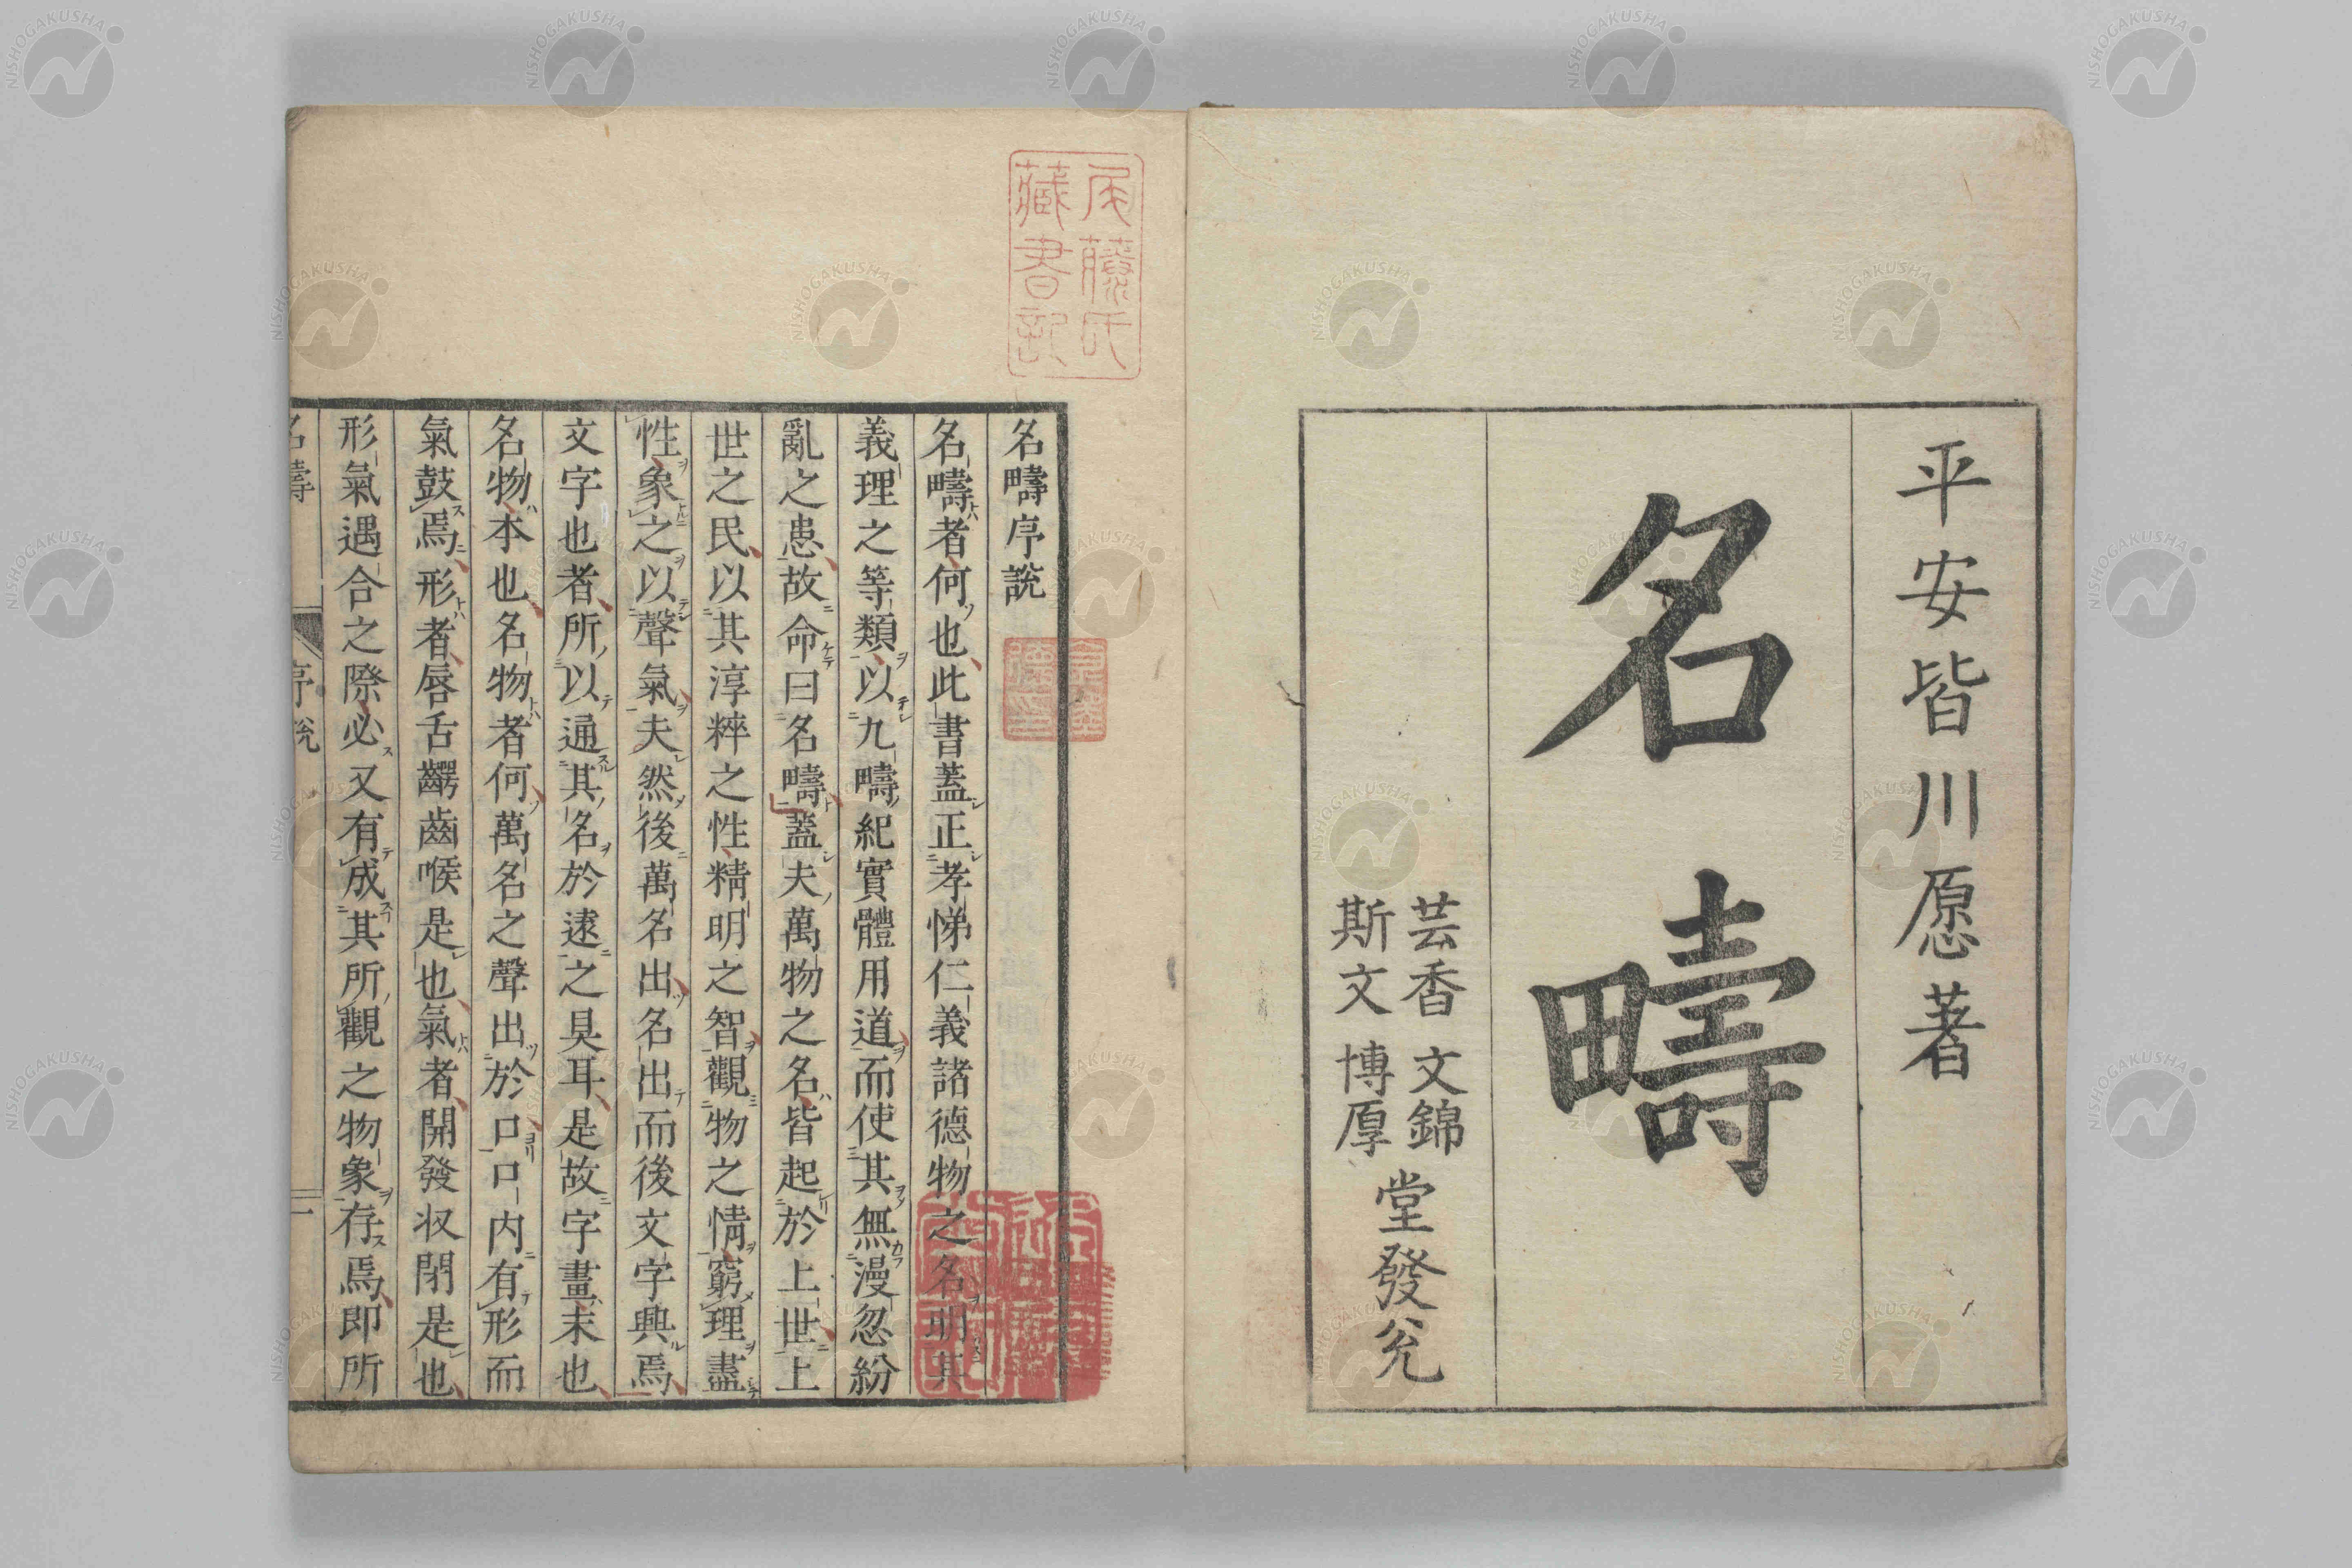 平安皆川愿著
名疇
芸香 文錦
斯文 博厚
堂發兌
矦藤氏
藏書記
名疇序說
名疇者何也此書蓋正孝悌仁義諸德物之名明其
義理之等類以九疇紀實體用道而使其無漫忽紛
亂之患故命曰名疇蓋夫萬物之名皆起於上世上
世之民以其淳粹之性精明之智觀物之情窮理盡
性象之以聲氣夫然後萬名出名出而後文字興焉
文字也者所以通其名於遠之具耳是故字畫末也
名物本也名物者何萬名之聲出於口口內有形而
氣鼓焉形者唇舌齶齒喉是也氣者開發収閉是也
形氣遇合之際必又有成其所觀之物象存焉即所
名疇
序說
一
NISHOGAKUSHA